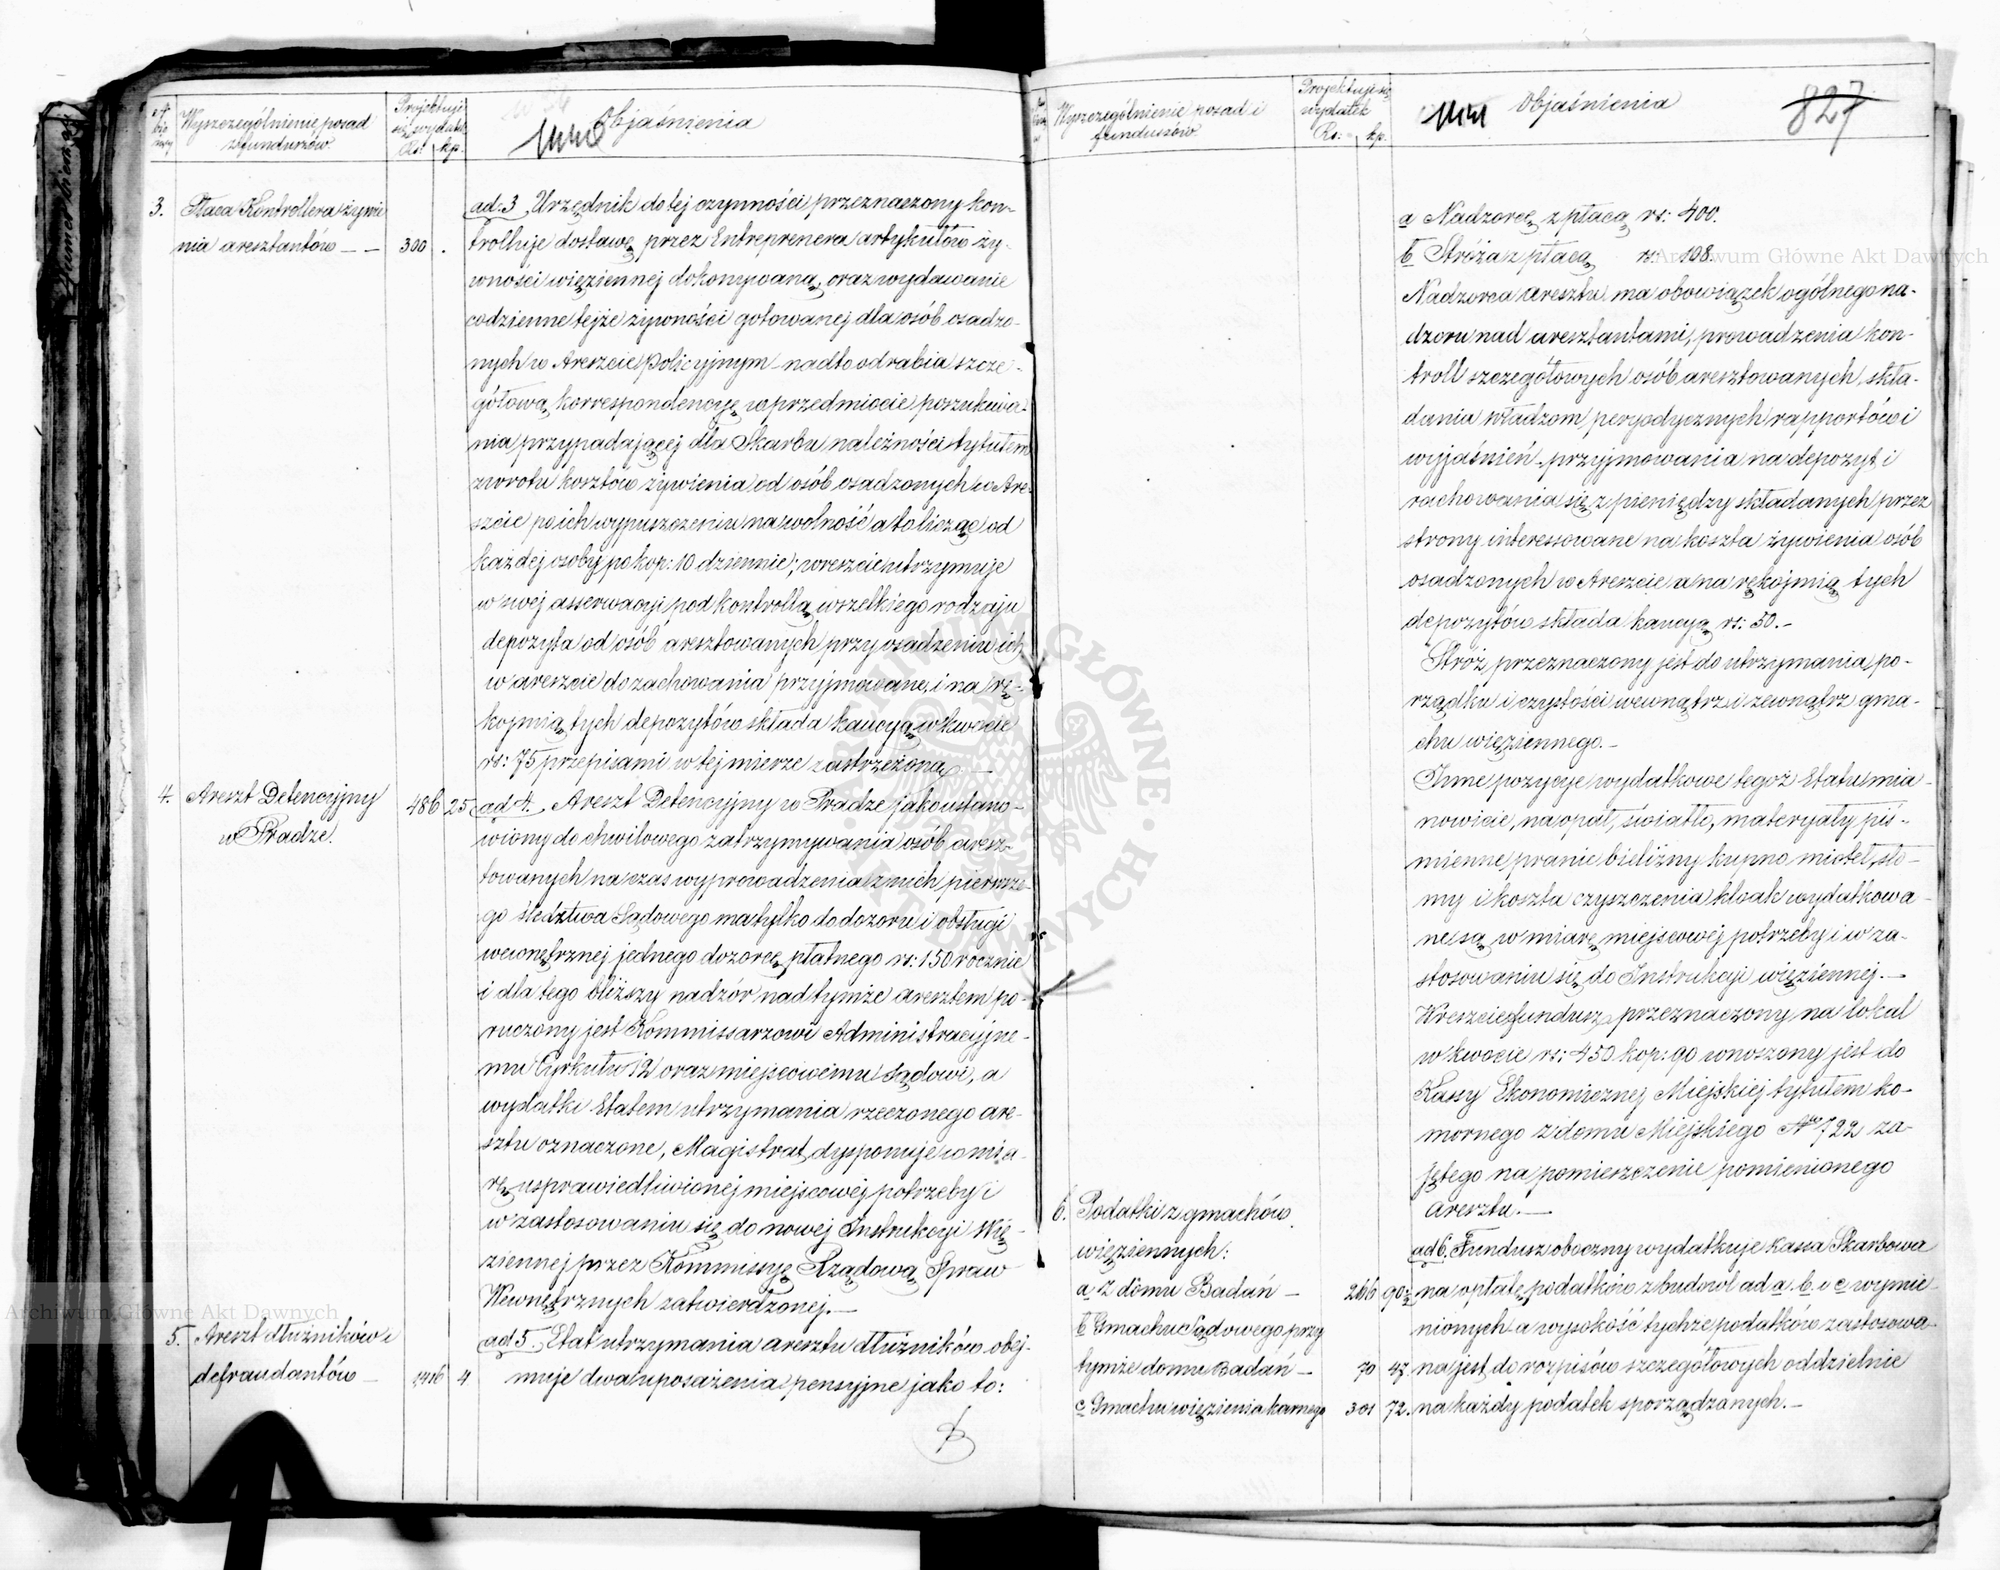 Wyszczególnienie posad
i funduszów
Projektuje
się wydatek
Rs: kp.
Objaśnienia
3. Płaca Kontrollera żywie
nia aresztantów — — 300 .
ad 3 Urzędnik do tej czynności przeznaczony kon-
trolluje dostawę przez Entreprenera artykułów ży-
wności więziennej dokonywaną, oraz wydawanie
codzienne tejże żywności gotowanej dla osób osadzo-
nych w Areszcie Policyjnym – nadto odrabia szcze-
gółową korrespondencyę w przedmiocie poszukiwa-
nia przypadającej dla Skarbu należności tytułem
zwrotu kosztów żywienia od osób osadzonych w Are-
szcie po ich wypuszczeniu na wolność a to licząc od
każdej osoby po kop: 10 dziennie; wreszcie utrzymuje
w swej asserwacyi pod kontrollą wszelkiego rodzaju
depozyta od osób aresztowanych przy osadzeniu ich
w areszcie do zachowania przyjmowane, i na rę-
kojmią tych depozytów składa kaucyą w kwocie
rs: 75 przepisami w tej mierze zastrzeżoną. —
4. Areszt Detencyjny
w Pradze. 486 25
ad 4. Areszt Detencyjny w Pradze jako ustano-
wiony do chwilowego zatrzymywania osób aresz-
towanych na czas wyprowadzenia z nich pierwsze-
go śledztwa Sądowego ma tylko do dozoru i obsługi
wewnętrznej jednego dozorcę płatnego rs: 150 rocznie
i dla tego bliższy nadzór nad tymże aresztem po-
ruczony jest Kommissarzowi Administracyjne-
mu Cyrkułu 12 oraz miejscowemu Sądowi, a
wydatki Etatem utrzymania rzeczonego are-
sztu oznaczone, Magistrat dysponuje w mia-
rę usprawiedliwionej miejscowej potrzeby i
w zastosowaniu się do nowej Instrukcyi Wię-
ziennej przez Kommissyę Rządową Spraw
Wewnętrznych zatwierdzonej. —
5. Areszt dłużników i
defraudantów — 1416 4
ad 5. Etat utrzymania aresztu dłużników obej-
muje dwa uposażenia pensyjne jako to:
Wyszczególnienie posad i
funduszów
Projektuje się
wydatek
Rs: kp.
Objaśnienia
827
a Nadzorcę z płacą rs: 400.
b Stróża z płacą rs: 108.
Nadzorca aresztu ma obowiązek ogólnego na-
dzoru nad aresztantami, prowadzenia kon-
troll szczegółowych osób aresztowanych, skła-
dania władzom peryodycznych rapportów i
wyjaśnień – przyjmowania na depozyt i
rachowania się z pieniędzy składanych przez
strony interessowane na koszta żywienia osób
osadzonych w Areszcie a na rękojmią tych
depozytów składa kaucyą rs: 50. –
Stróż przeznaczony jest do utrzymania po-
rządku i czystości wewnątrz i zewnątrz gma-
chu więziennego. –
Inne pozycye wydatkowe tegoż Etatu mia-
nowicie, na opał, światło, materyały piś-
mienne, pranie bielizny, kupno mioteł, sło-
my i koszta czyszczenia kloak wydatkowa-
ne są w miarę miejscowej potrzeby i w za-
stosowaniu się do Instrukcyi więziennej. —
Wreszcie fundusz przeznaczony na lokal
w kwocie rs: 450 kop: 90 wnoszony jest do
Kassy Ekonomicznej Miejskiej tytułem ko-
mornego z domu Miejskiego No 722 za-
jętego na pomieszczenie pomienionego
Aresztu. —
6. Podatki z gmachów
więziennych:
a Z domu Badań — 266 90½
b Gmachu Sądowego przy
tymże domu Badań — 70 47.
c Gmachu więzienia karnego 301 72.
ad 6. Fundusz oboczny wydatkuje Kassa Skarbowa
na opłatę podatków z budowl ad a. b. i c wymie-
nionych a wysokość tychże podatków zastosowa-
na jest do rozpisów szczegółowych oddzielnie
na każdy podatek sporządzanych. —
Archiwum Główne Akt Dawnych
Archiwum Główne Akt Dawnych
ARCHIWUM GŁÓWNE AKT DAWNYCH